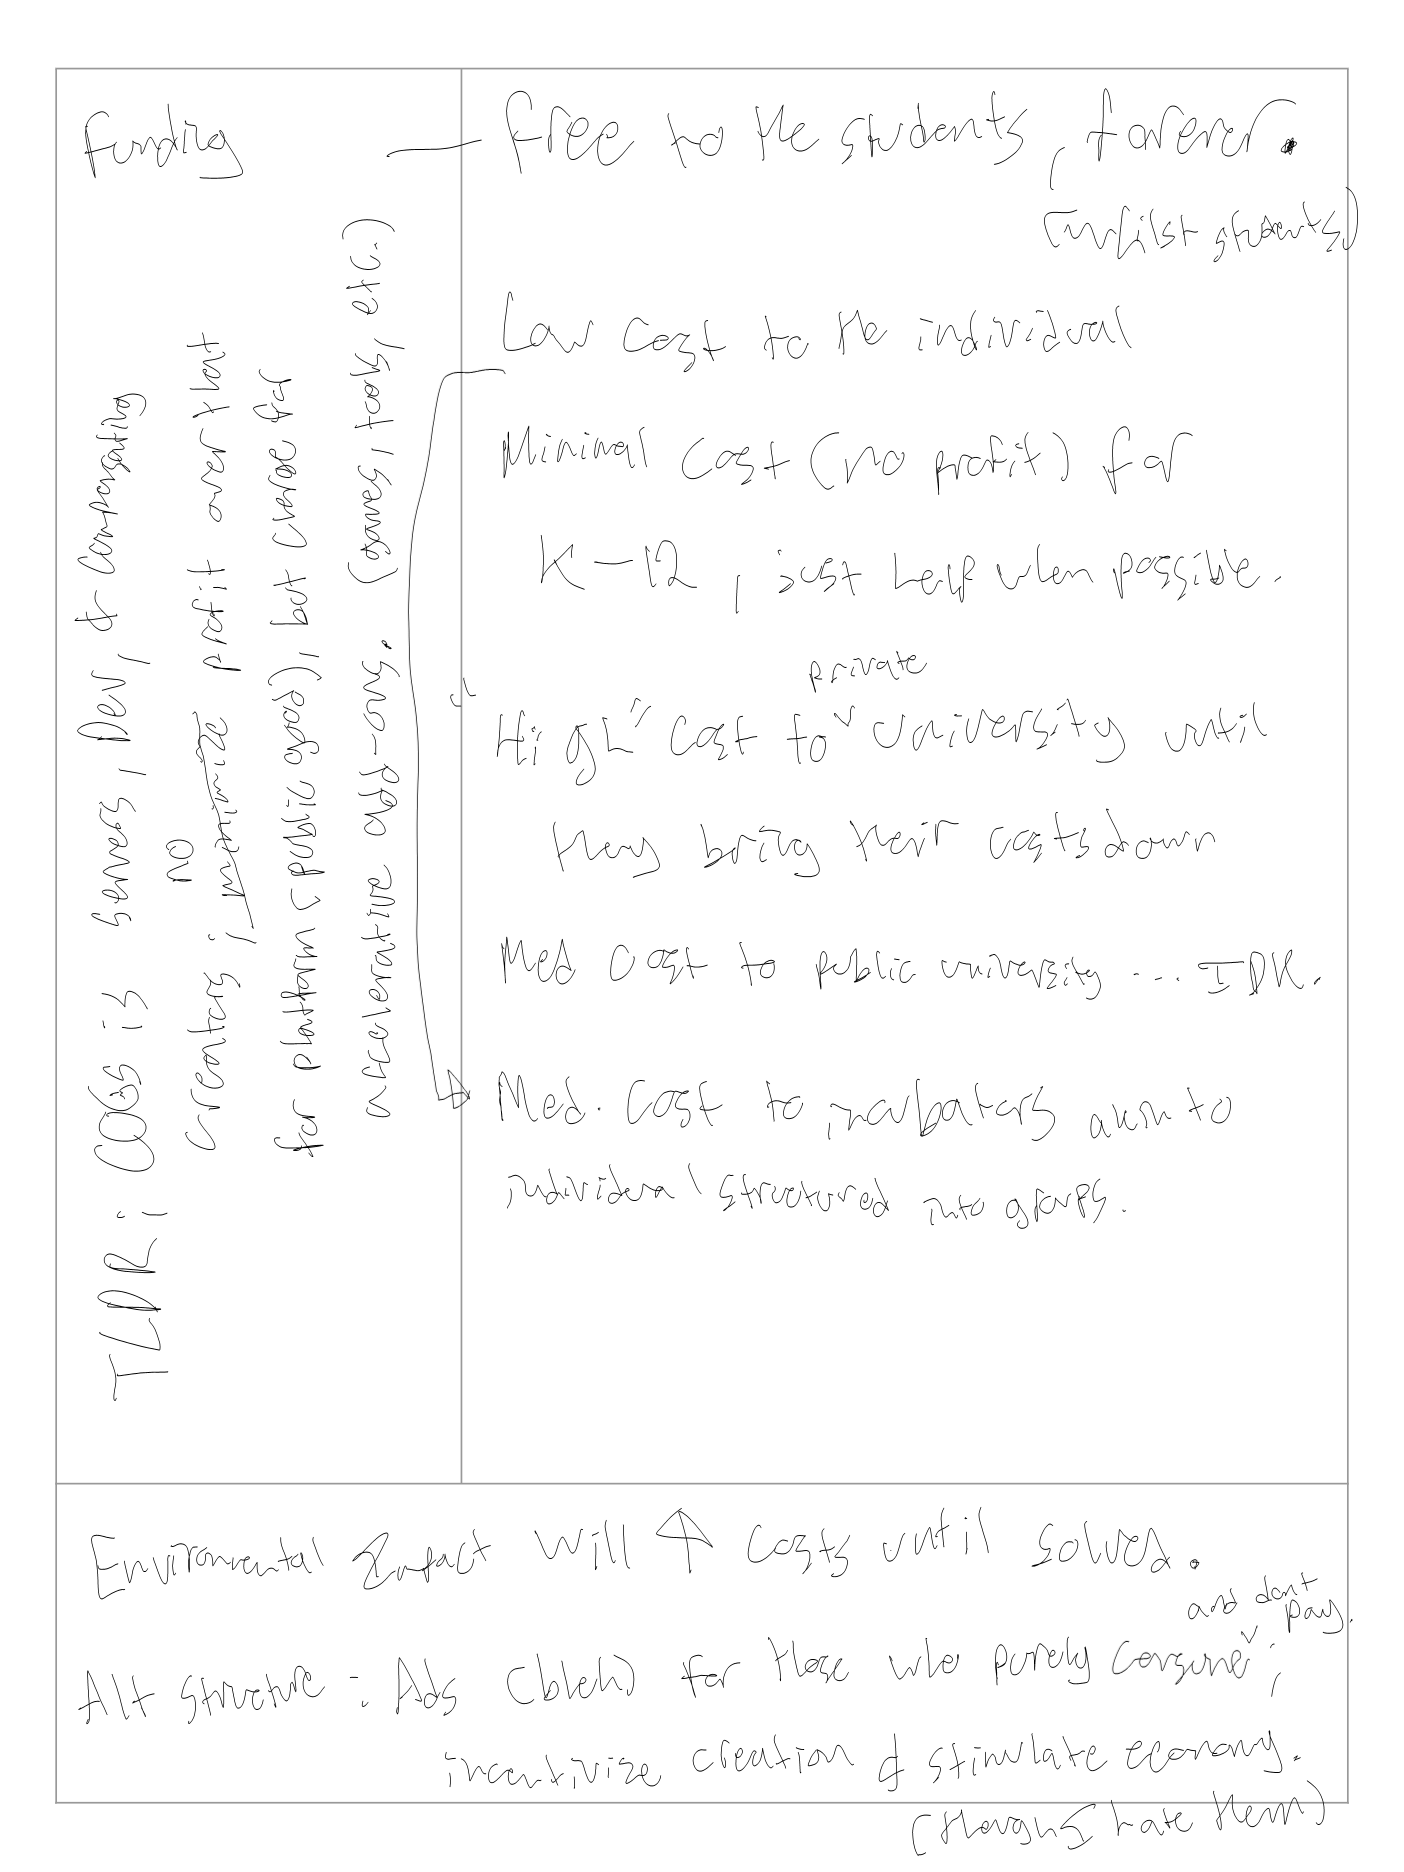 Funding
TLDR: COGS is servers, Dev, & compensating
creators; no minimize profit over that
for platform (public good), but charge for
accelerative add-ons. (games, tools, etc.)
— Free to the students, forever.
(whilst students)
Low cost to the individual
Minimal cost (no profit) for
K-12, just help when possible.
private
"High" cost to university until
they bring their costs down
Med cost to public university ... IDK.
Med. cost to incubators akin to
individual structured into groups.
Environmental Impact will ↑ costs until solved.
and dont
pay.
Alt structure: Ads (bleh) for those who purely consume;
incentivize creation & stimulate economy.
(though I hate them)